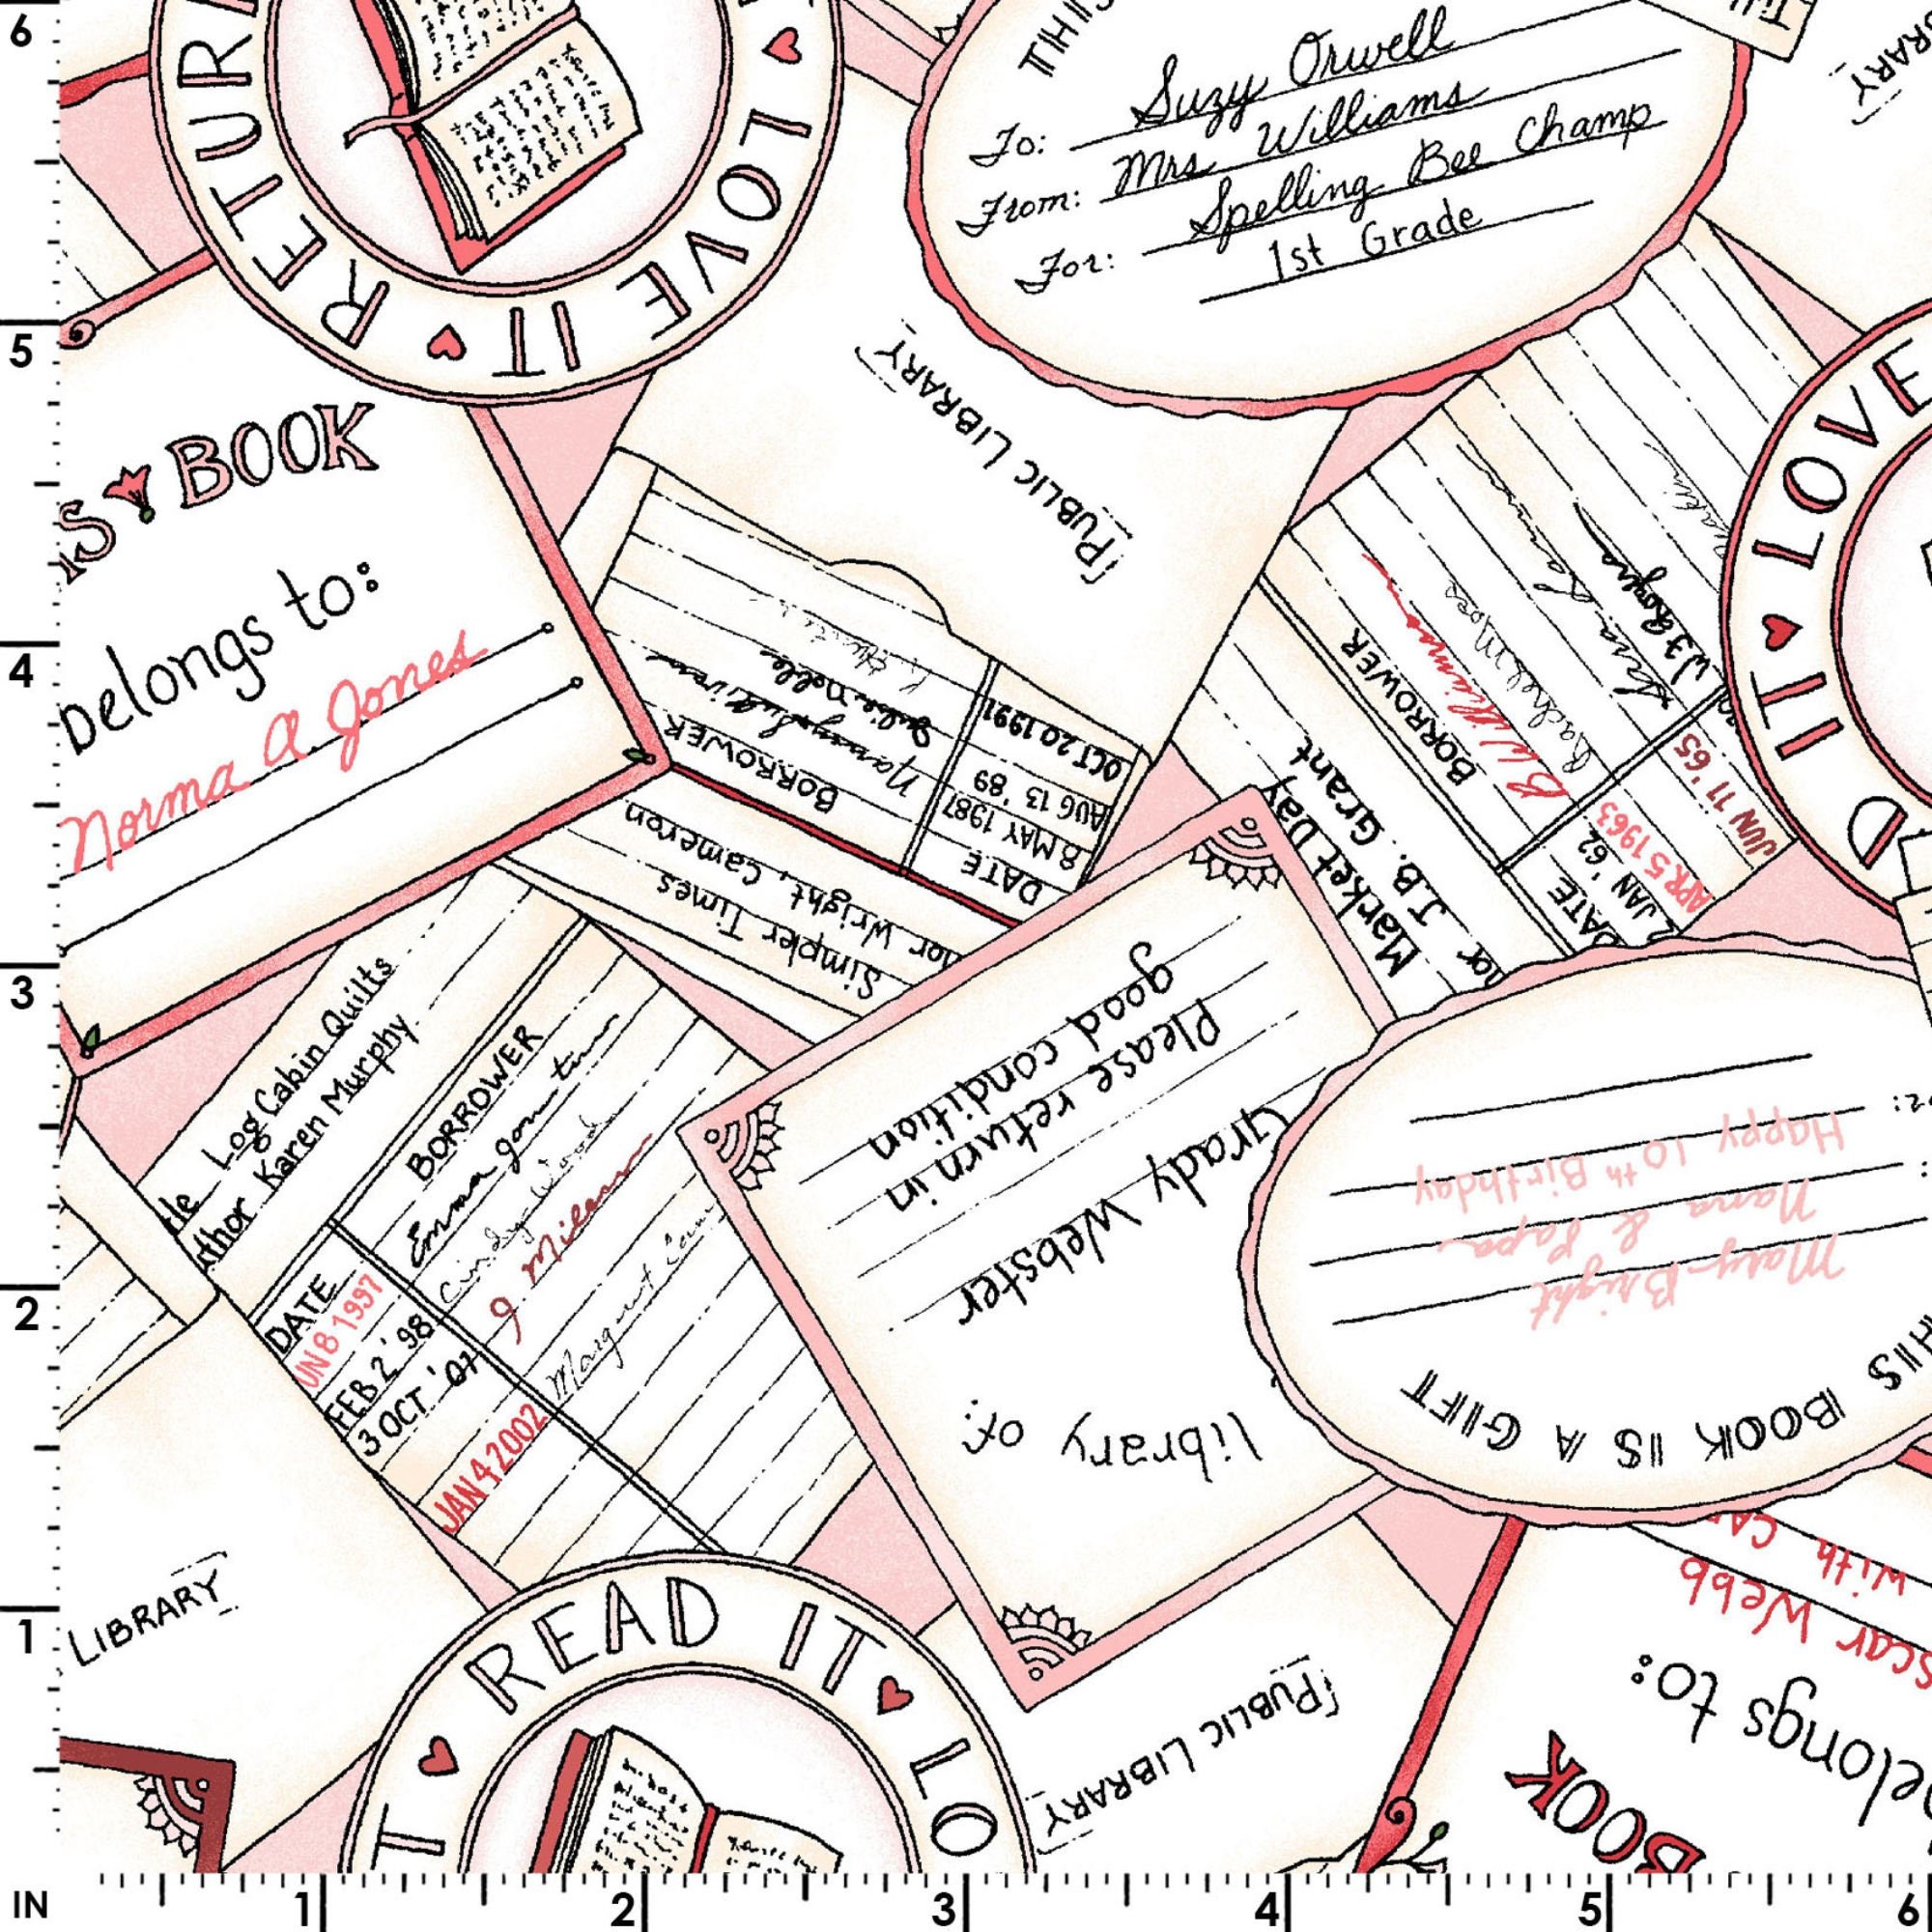 RETUR
LOVE IT
THIS
To: Suzy Orwell
From: Mrs. Williams
For: Spelling Bee Champ
1st Grade
PUBLIC LIBRARY
BOOK
belongs to:
Norma A Jones
Simpler Times
Wright, Cameron
DATE BORROWER
8 MAY 1987 Nancy Sullivan
AUG 13 '89 Julie Noble
OCT 20 1991
Market Day
J.B. Grant
DATE BORROWER
JAN '62 B Williams
APR 5 1963 Rachel Moes
JUN 11 '65
LOVE IT
Log Cabin Quilts
Karen Murphy
DATE BORROWER
UN 8 1997 Emma
FEB 2 '98 Cindy Wood
3 OCT '01
JAN 4 2002 Margaret
library of:
Grady Webster
Please return in
good condition
HIS BOOK IS A GIFT
Mary Bright
Nana & Papa
Happy 10th Birthday
LIBRARY
READ IT LO
PUBLIC LIBRARY
BOOK
elongs to:
scar Webb
with CA
6
5
4
3
2
1
IN 1 2 3 4 5 6